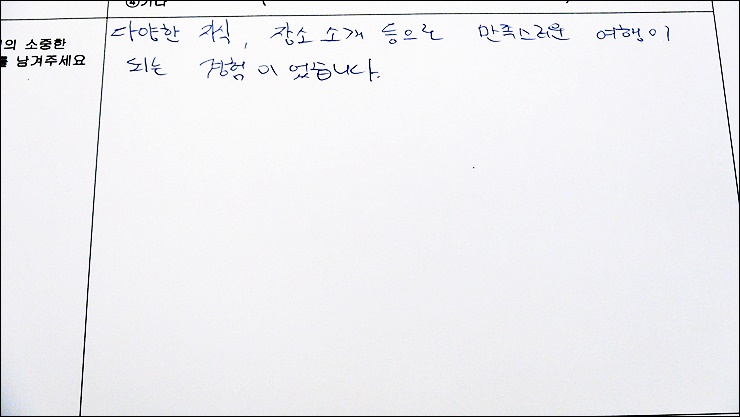 ④기타 (
의 소중한
를 남겨주세요
다양한 지식, 장소 소개 등으로 만족스러운 여행이
되는 경험이었습니다.